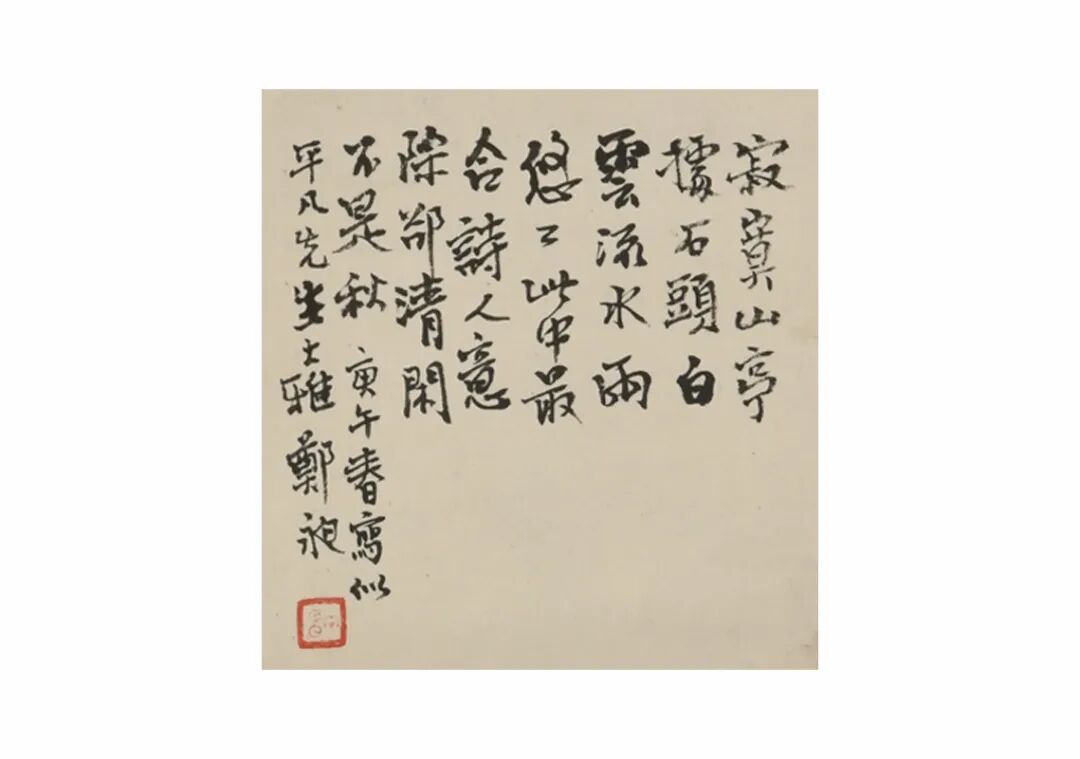 寂寞山亭
據石頭白
雲流水兩
悠〻此中最
合詩人意
除郤清閑
不是秋 庚午春寫似
平凡先生大雅 鄭昶